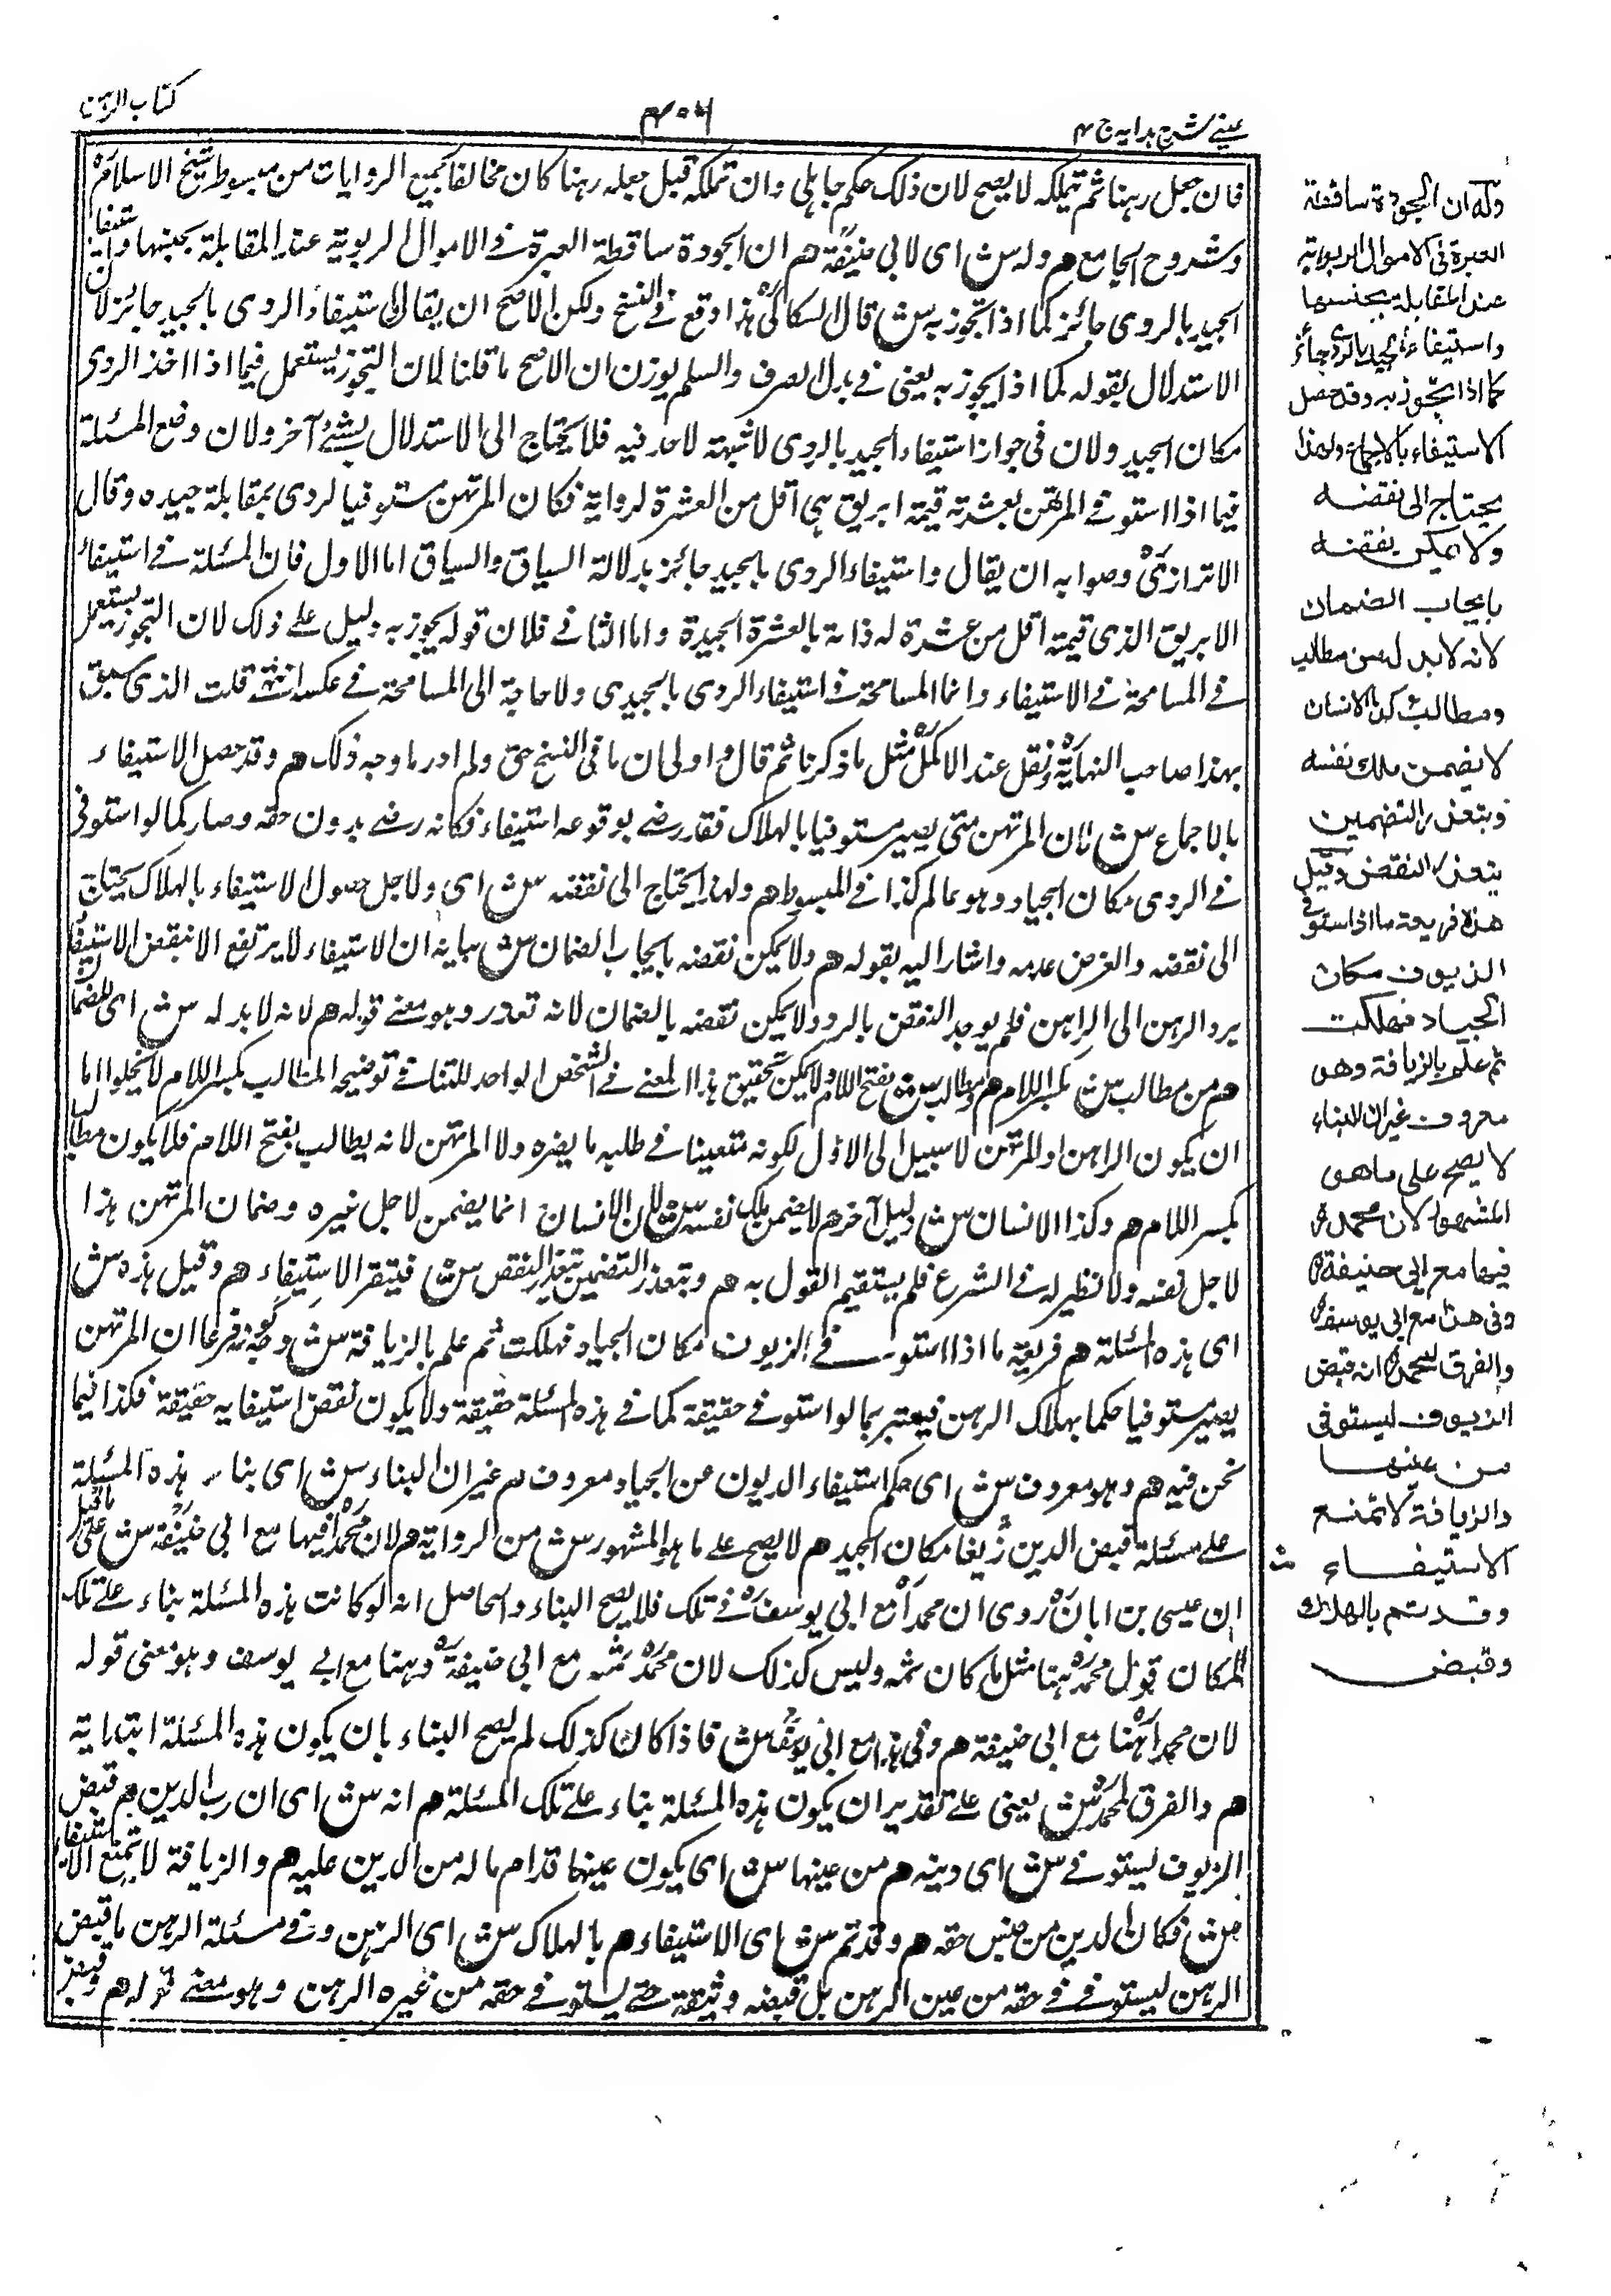 عينى شرح هدايه ج ٤
كتاب الرهن
فان جعل رهنا ثم تملكه لا يصح لان ذلك حكم جاهلى وان تملكه قبل جعله رهنا كان مخالفا لجميع الروايات من مبسوط شيخ الاسلام
وشروح الجامع هم وله ش اى لابى حنيفة هم ان الجودة ساقطة العبرة فى الاموال الربوية عند المقابلة بجنسها واستيفاء
الجيد بالردى جائز كما اذا تجوز به ش قال السكاكى هذا وقع فى النسخ ولكن الاصح ان يقال استيفاء الردى بالجيد جائز لان
الاستدلال بقوله كما اذا تجوز به يعنى فى بدل الصرف والسلم يوزن ان الاصح ما قلنا لان التجوز يستعمل فيما اذا اخذ الردى
مكان الجيد ولان فى جواز استيفاء الجيد بالردى لا شبهة لاحد فيه فلا يحتاج الى الاستدلال بشئ آخر ولان وضع المسئلة
فيما اذا استوفى المرتهن بعشرته قيمة ابريق هى اقل من العشرة لرواية فكان المرتهن مستوفيا لردى بمقابلة جيده وقال
الاترازى وصوابه ان يقال واستيفاء الردى بالجيد جائز بدلالة السياق والسياق اما الاول فان المسئلة فى استيفاء
الابريق الذى قيمته اقل من عشرة له ذاته بالعشرة الجيدة واما الثانى فلان قوله تجوز به دليل على ذلك لان التجوز يستعمل
فى المسامحة فى الاستيفاء وانما المسامحة فى استيفاء الردى بالجيدى ولا حاجة الى المسامحة فى عكسه انتهى قلت الذى سبق
بهذا صاحب النهاية ونقل عند الاكمل مثل ما ذكرنا ثم قال واولى ان ما فى النسخ حق ولم ادر ما وجه ذلك هم وقد حصل الاستيفاء
بالاجماع ش لان المرتهن متى يصير مستوفيا بالهلاك فقد رضى بوقوعه استيفاء فكانه رضى بدون حقه وصار كما لو استوفى
فى الردى مكان الجياد وهو عالم كذا فى المبسوط هم ولهذا يحتاج الى نقضه ش اى ولاجل حصول الاستيفاء بالهلاك يحتاج
الى نقضه والغرض عدمه واشار اليه بقوله هم ولا يمكن نقضه بايجاب الضمان ش بيانه ان الاستيفاء لا يرتفع الا بنقض الاستيفاء
يرد الرهن الى الراهن فلم يوجد النقض بالرد ولا يمكن نقضه بالضمان لانه تعذر وهو معنى قوله هم لانه لا بد له ش اى للضمان
هم من مطالب ش بكسر اللام هم ومطالب ش بفتح اللام ولا يمكن تحقيق هذا المعنى فى الشخص الواحد للتنافى توضيحه المطالب بكسر اللام لا يخلوا اما
ان يكون الراهن او المرتهن لا سبيل الى الاول لكونه متعينا فى طلبه ما يضره ولا المرتهن لانه يطالب بفتح اللام فلا يكون مطالبا
بكسر اللام هم وكذا الانسان ش دليل آخر هم لا يضمن ملك نفسه ش لان الانسان انما يضمن لاجل غيره وضمان المرتهن هذا
لاجل نفسه ولا نظير له فى الشرع فلم يستقيم القول به هم وبتعذر التضمين يتعذر النقض ش فيتقر الاستيفاء هم وقيل هذه ش
اى هذه المسئلة هم فريعة ما اذا استوفى الزيوف مكان الجياد فهلكت ثم علم بالزيافة ش وجه كونه فرعا ان المرتهن
يصير مستوفيا حكما بهلاك الرهن فيعتبر بما لو استوفى حقيقة كما فى هذه المسئلة حقيقة ولا يكون نقض استيفايه حقيقة فكذا فيما
نحن فيه هم وهو معروف ش اى حكم استيفاء الديون عن الجياد معروف هم غير ان البناء ش اى بناء هذه المسئلة
على مسئلة قبض الدين زيفا مكان الجيد هم لا يصح على ما هو المشهور ش من الرواية هم لان محمدا فيها مع ابى حنيفة ش على ما قيل
ان عيسى بن ابان روى ان محمدا مع ابى يوسف فى تلك فلا يصح البناء والحاصل انه لو كانت هذه المسئلة بناء على تلك
لكان قول محمد هنا مثل ما كان ثمه وليس كذلك لان محمد ثمه مع ابى حنيفة وهنا مع ابى يوسف وهو معنى قوله
لان محمدا هنا مع ابى حنيفة هم وفى هذا مع ابى يوسف ش فاذا كان كذلك لم يصح البناء بان يكون هذه المسئلة ابتداية
هم والفرق لمحمد ش يعنى على تقدير ان يكون هذه المسئلة بناء على تلك المسئلة هم انه ش اى ان رب الدين هم قبض
الزيوف ليستوفى ش اى دينه هم من عينها ش اى يكون عينها قدام ماله من الدين عليه هم والزيافة لا تمنع الاستيفاء
ش فكان الدين من جنس حقه هم وقد تم ش اى الاستيفاء هم بالهلاك ش اى الرهن وفى مسئلة الرهن ما قبض
الرهن ليستوفى فى حقه من عين الرهن بل قبضه وثيقة حتى يستوفى حقه من غيره الرهن وهو معنى قوله هم وقبض
وله ان الجودة ساقطة
العبرة فى الاموال الربوية
عند المقابلة بجنسها
واستيفاء الجيد بالردى جائز
كما اذا تجوز به وقد حصل
الاستيفاء بالاجماع ولهذا
يحتاج الى نقضه
ولا يمكن نقضه
بايجاب الضمان
لانه لا بد له من مطالب
ومطالب وكذا الانسان
لا يضمن ملك نفسه
وبتعذر التضمين
يتعذر النقض وقيل
هذه فريعة ما اذا استوفى
الزيوف مكان
الجياد فهلكت
ثم علم بالزيافة وهو
معروف غير ان البناء
لا يصح على ما هو
المشهور لان محمدا
فيها مع ابى حنيفة
وفى هذا مع ابى يوسف
والفرق لمحمد انه قبض
الزيوف ليستوفى
من عينها
والزيافة لا تمنع
الاستيفاء
وقد تم بالهلاك
وقبض